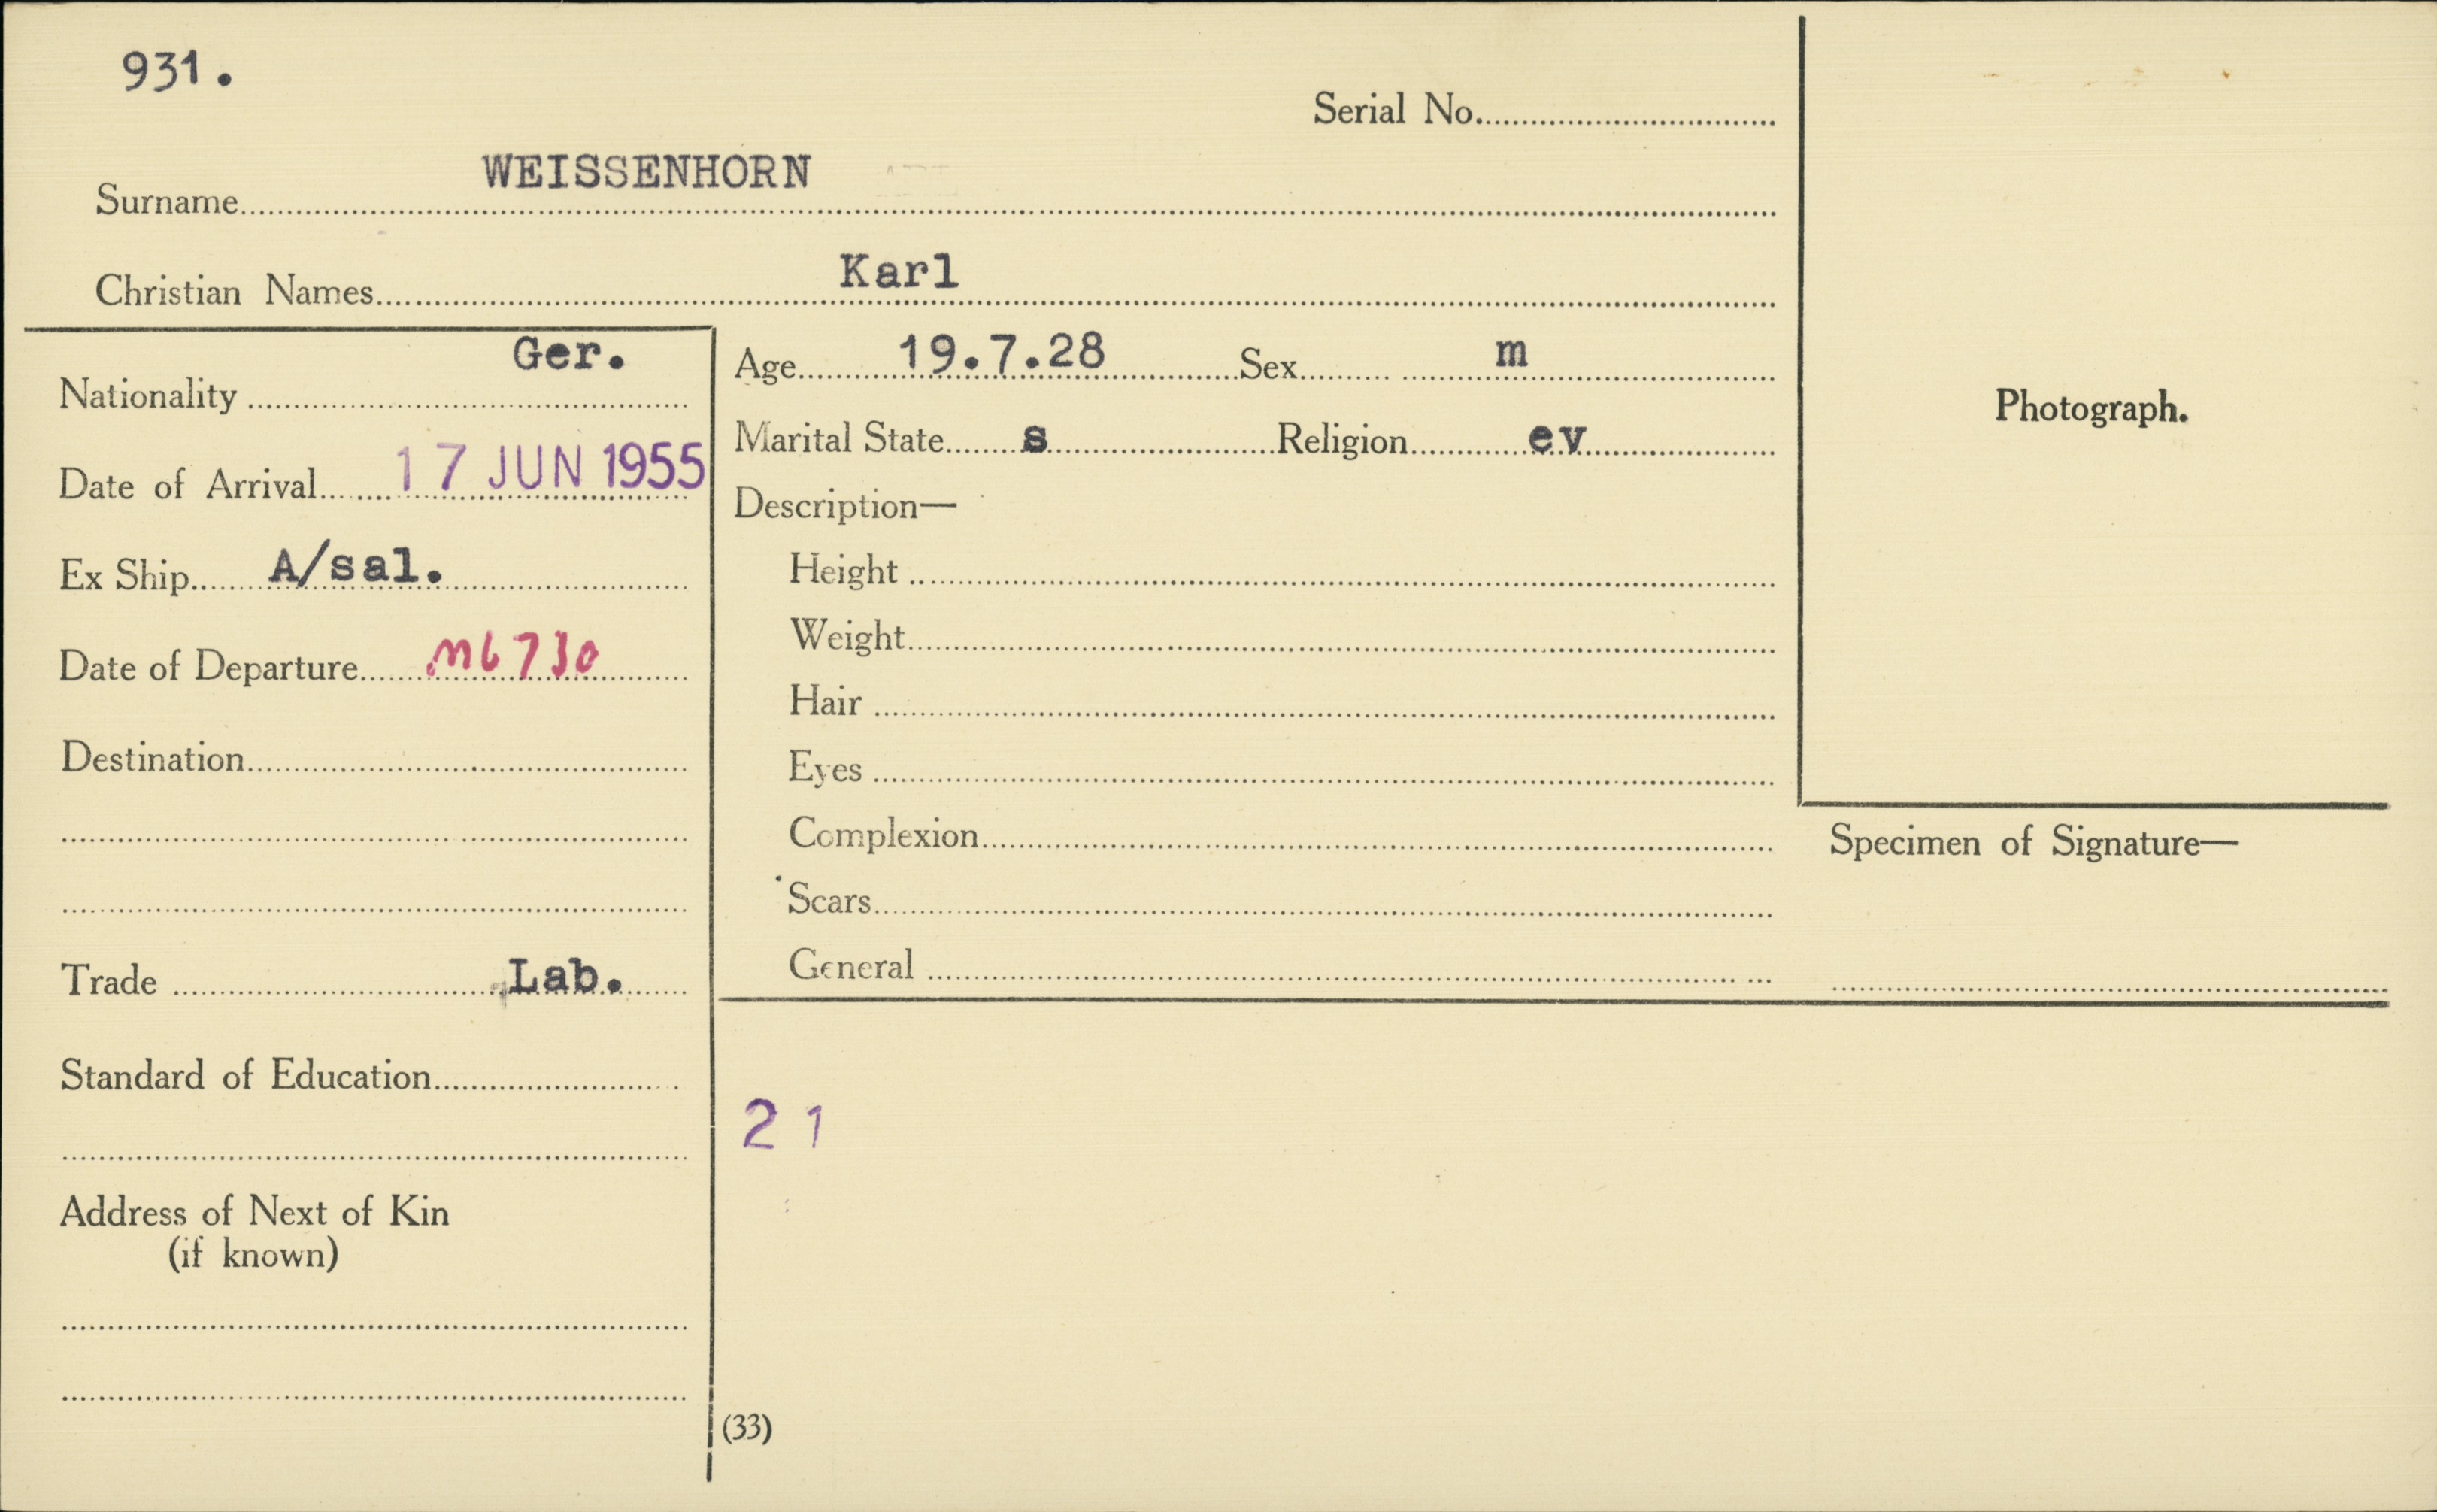 931.
Serial No.
Surname WEISSENHORN
Christian Names Karl
Nationality Ger.
Date of Arrival 17 JUN 1955
Ex Ship A/sal.
Date of Departure M6730
Destination
Trade Lab.
Standard of Education
Address of Next of Kin
(if known)
Age 19.7.28 Sex m
Marital State s Religion ev
Description—
Height
Weight
Hair
Eyes
Complexion
Scars
General
Photograph.
Specimen of Signature—
21
(33)